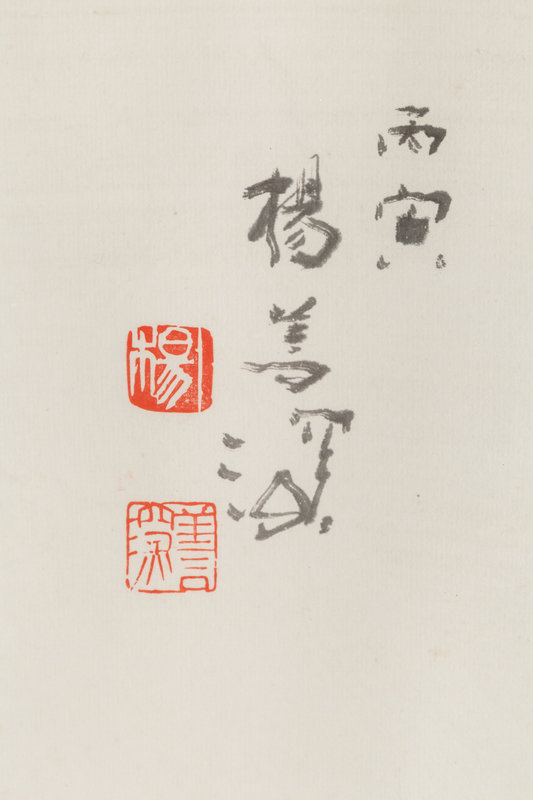 丙寅
楊善深
楊
善深